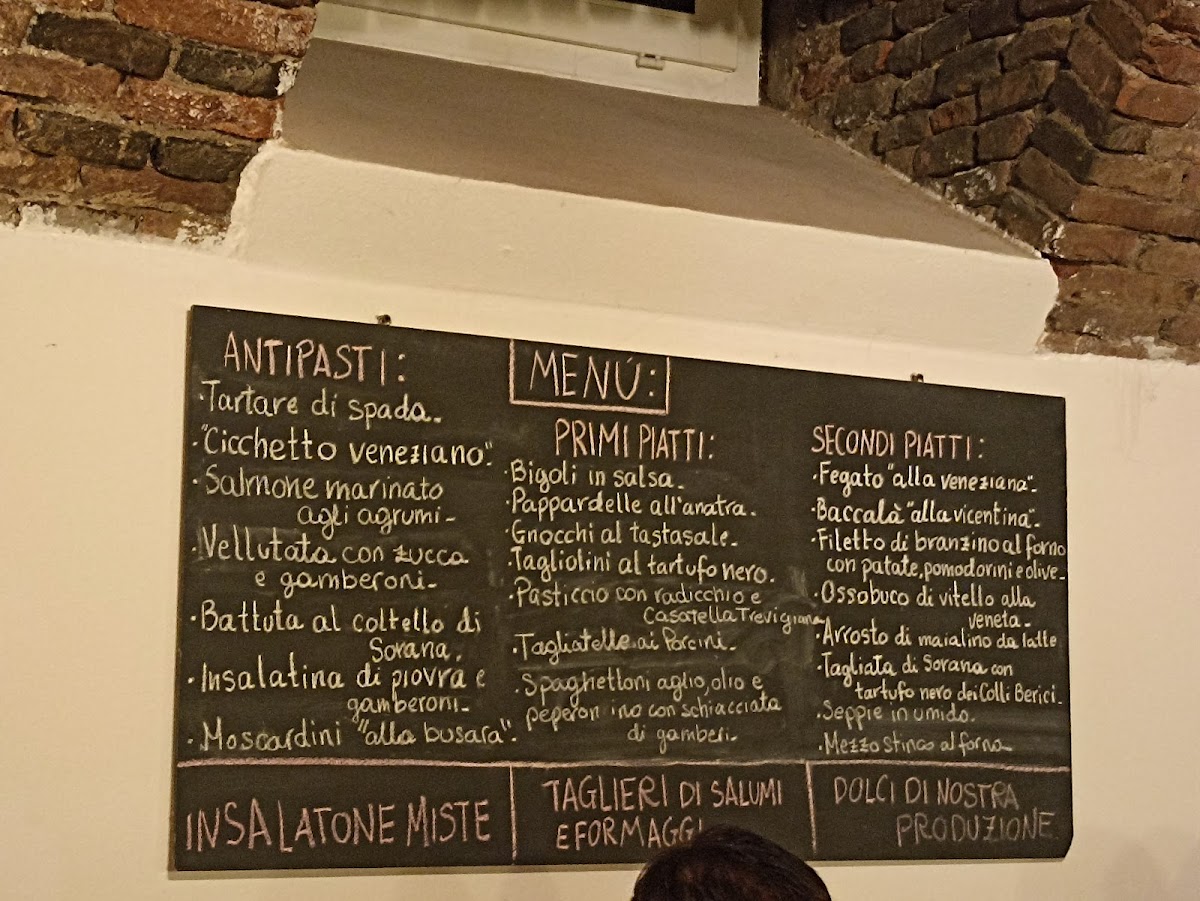 MENÚ:
ANTIPASTI:
·Tartare di spada.
·"Cicchetto veneziano".
·Salmone marinato
agli agrumi.
·Vellutata con zucca
e gamberoni.
·Battuta al coltello di
Sorana.
·Insalatina di piovra e
gamberoni.
·Moscardini "alla busara".
PRIMI PIATTI:
·Bigoli in salsa.
·Pappardelle all'anatra.
·Gnocchi al tastasale.
·Tagliolini al tartufo nero.
·Pasticcio con radicchio e
Casatella Trevigiana
·Tagliatelle ai Porcini.
·Spaghettoni aglio, olio e
peperoncino con schiacciata
di gamberi.
SECONDI PIATTI:
·Fegato "alla veneziana".
·Baccalà "alla vicentina".
·Filetto di branzino al forno
con patate, pomodorini e olive.
·Ossobuco di vitello alla
veneta.
·Arrosto di maialino da latte
·Tagliata di Sorana con
tartufo nero dei Colli Berici.
·Seppie in umido.
·Mezzo stinco al forno
INSALATONE MISTE
TAGLIERI DI SALUMI
E FORMAGGI
DOLCI DI NOSTRA
PRODUZIONE